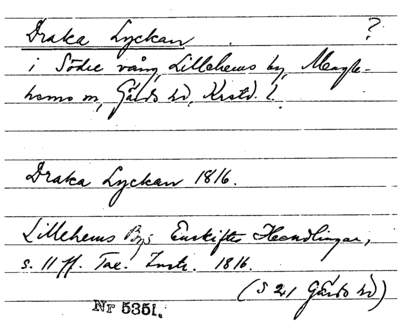 Draka Lyckan ?
i Södre vång, Lillehems by, Maglehems sn, Gärds hd, Krstd. l.
Draka Lyckan 1816.
Lillehems Bys Enskiftes Handlingar,
s. 11 ff. Tae. Instr. 1816.
(S 21 Gärds hd)
Nr 5351.